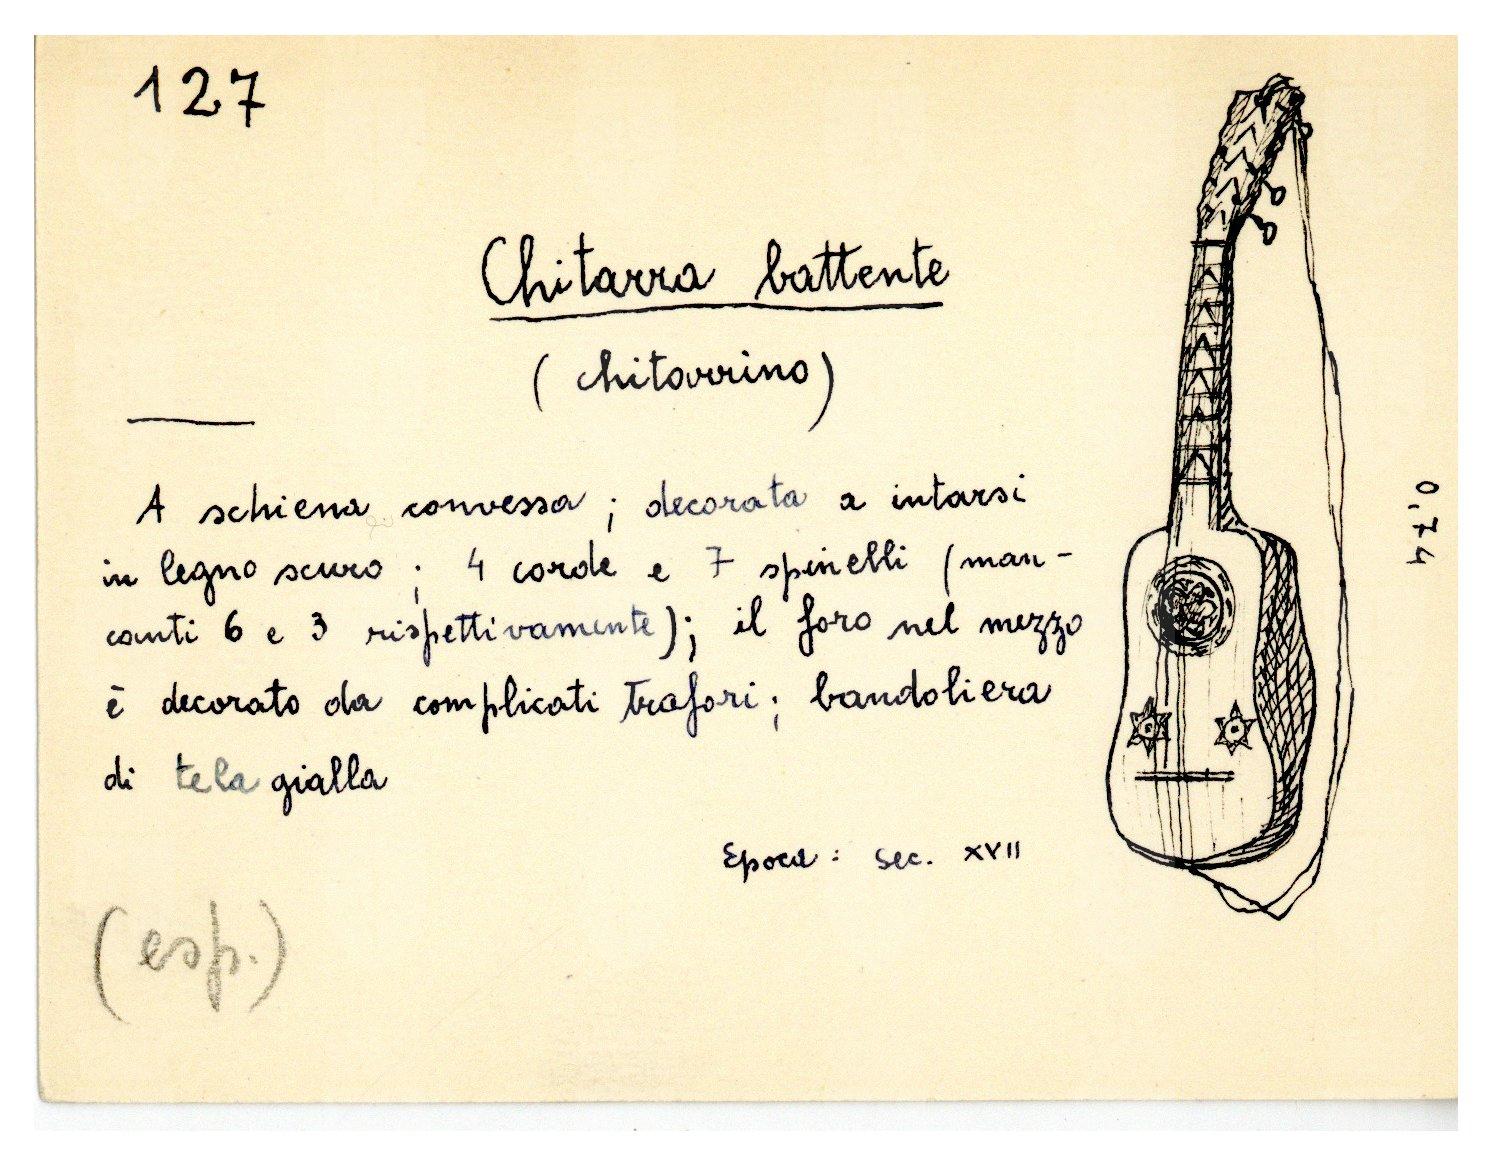 127
Chitarra battente
(chitarrino)
A schiena convessa; decorata a intarsi
in legno scuro; 4 corde e 7 spinelli (man-
canti 6 e 3 rispettivamente); il foro nel mezzo
è decorato da complicati trafori; bandoliera
di tela gialla
Epoca: sec. XVII
(esp.)
0,74